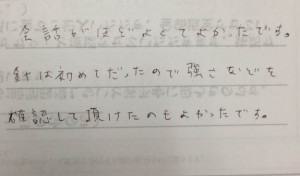 会話がほどよくてよかったです。
針は初めてだったので強さなどを
確認して頂けたのもよかったです。